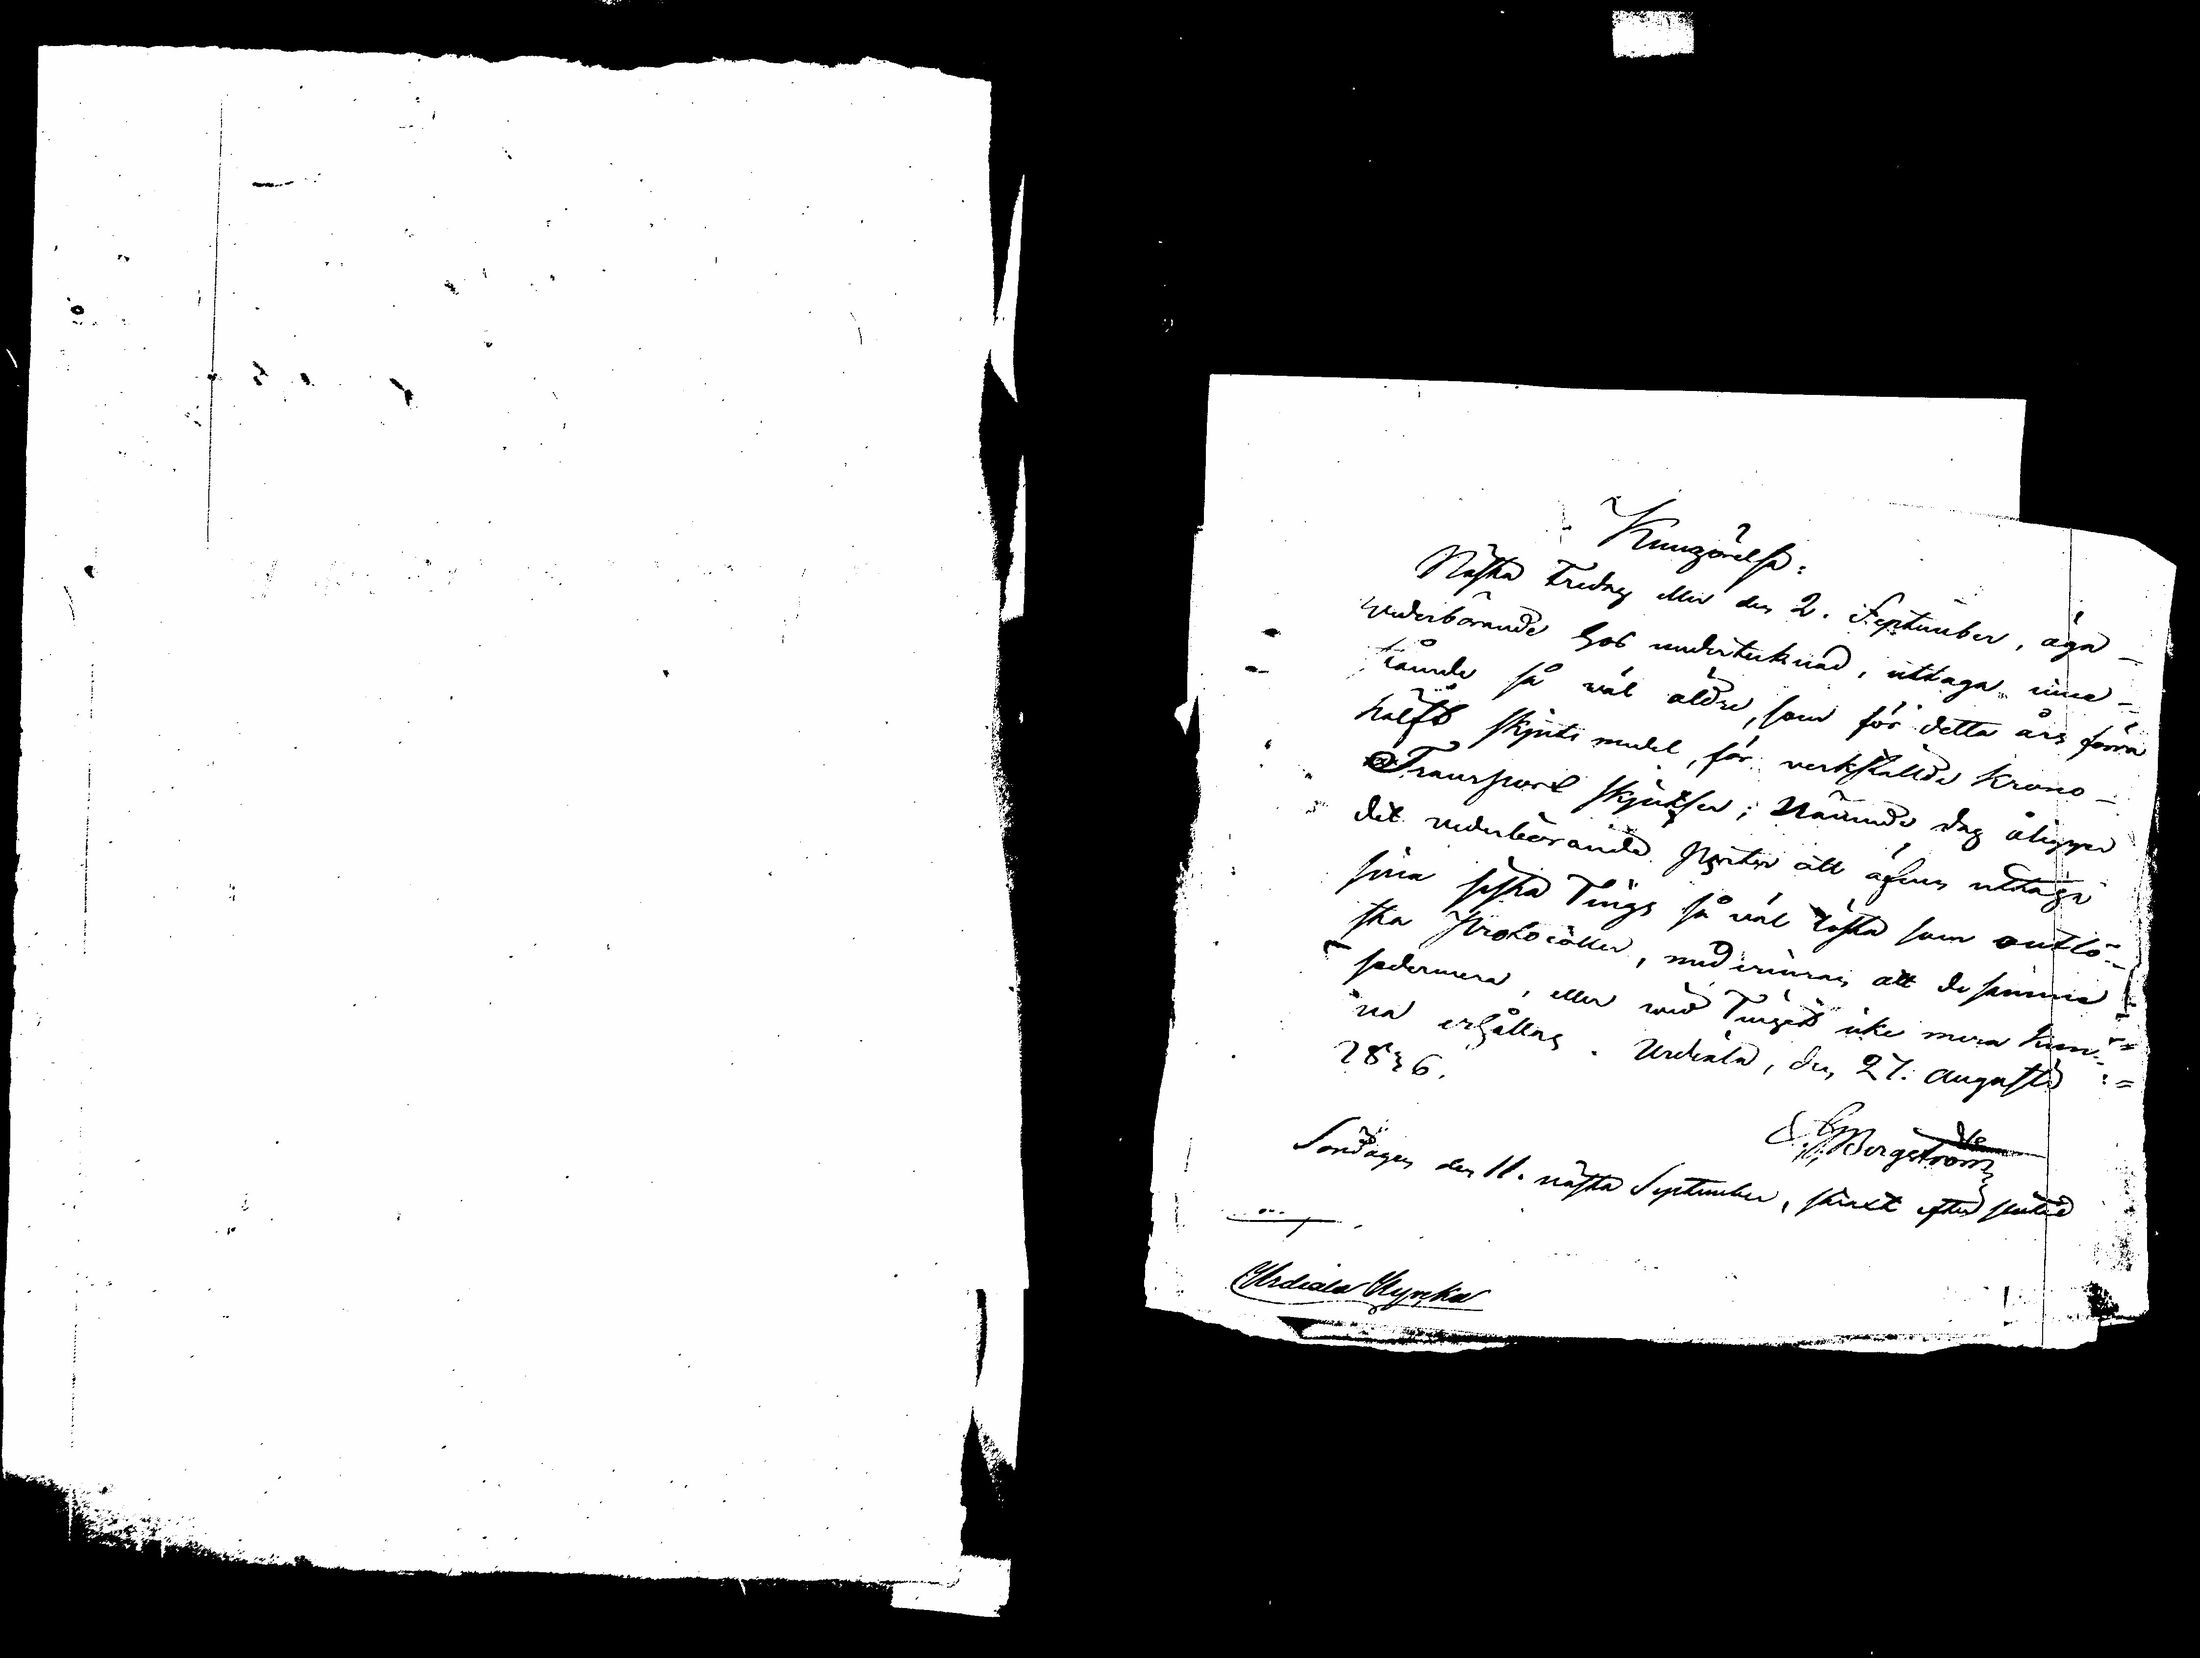 Kungörelse:
Nästa Fredag eller den 2. September, äga
vederbörande hos undertecknad, uttaga inne-
stående så väl äldre, som för detta års förra
hälft skjuts medel, för verkstälde Krono-
Transport skjutser; Nämnde dag åligger
det vederbörande parter att äfven uttaga
sina sista Tings så väl lösta som outlö-
sta Protocoller, med erinran att de samma
sedermera, eller wid Tinget icke mera kun-
na erhållas. Urdiala, den 27. Augusti
1836.
Bergström
Söndagen den 11. nästa September, straxt efter slutad
Urdiala Kyrka